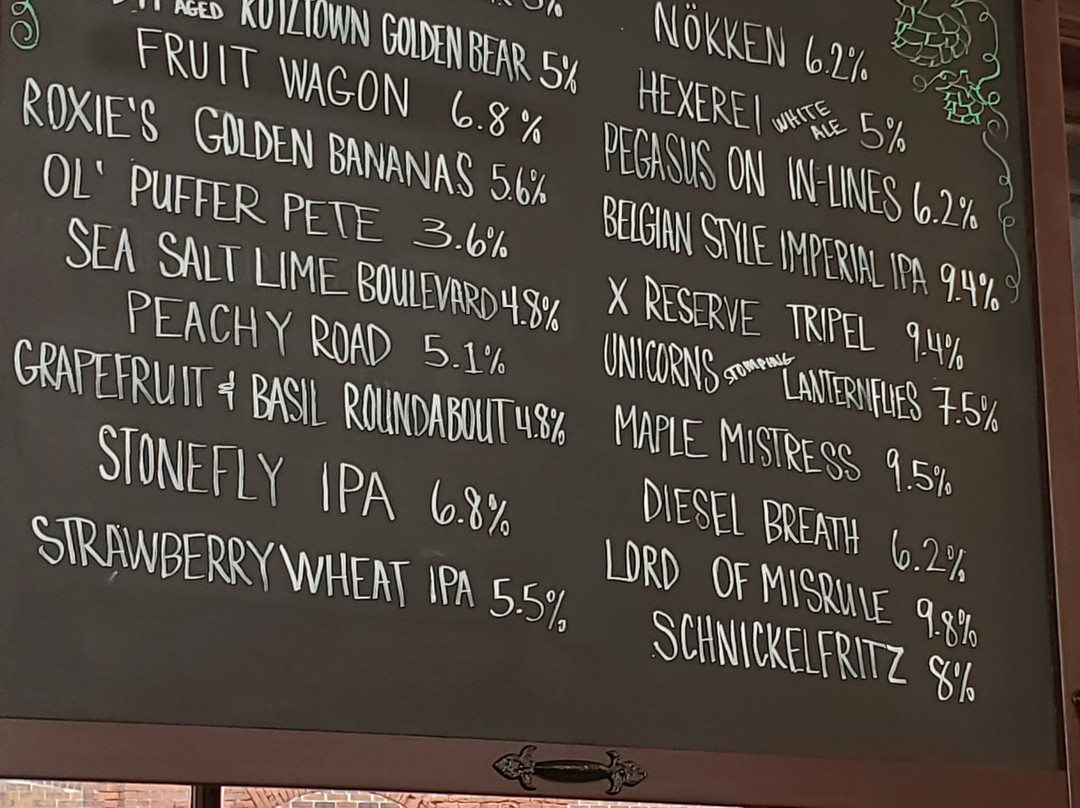 5%
AGED KUTZTOWN GOLDEN BEAR 5%
FRUIT WAGON 6.8%
ROXIE'S GOLDEN BANANAS 5.6%
OL' PUFFER PETE 3.6%
SEA SALT LIME BOULEVARD 4.8%
PEACHY ROAD 5.1%
GRAPEFRUIT & BASIL ROUNDABOUT 4.8%
STONEFLY IPA 6.8%
STRAWBERRY WHEAT IPA 5.5%
NÖKKEN 6.2%
HEXEREI WHITE ALE 5%
PEGASUS ON IN-LINES 6.2%
BELGIAN STYLE IMPERIAL IPA 9.4%
X RESERVE TRIPEL 9.4%
UNICORNS STOMPING LANTERNFLIES 7.5%
MAPLE MISTRESS 9.5%
DIESEL BREATH 6.2%
LORD OF MISRULE 9.8%
SCHNICKELFRITZ 8%